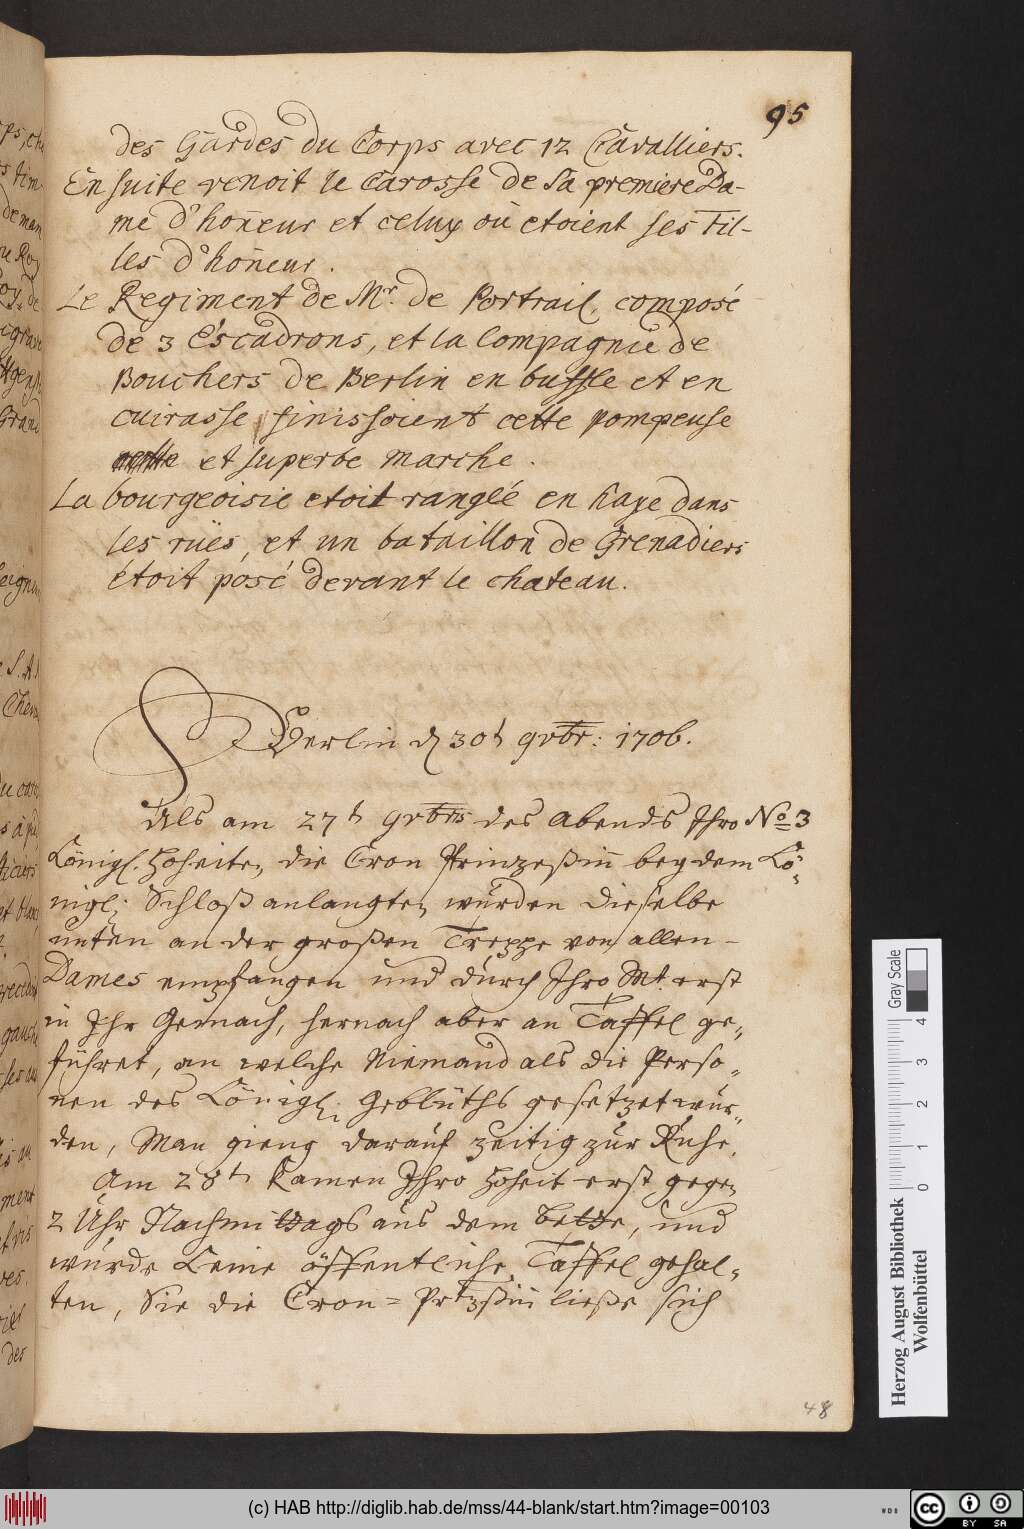 95
des Gardes du Corps avec 12 Cavalliers.
Ensuite venoit le Carosse de Sa premiere Da-
me d'honeur et celuy où etoient ses Fil-
les d'honeur.
Le Regiment de Mr. de Portrail, composé
de 3 Escadrons, et la Compagnie de
Bouchers de Berlin en buffle et en
cuirasse finissoient cette pompeuse
et superbe marche.
La bourgeoisie etoit ranglé en haye dans
les rües, et un bataillon de Grenadiers
étoit posé devant le chateau.
Berlin d 30t 9vbr: 1706.
Als am 27t 9vbris des Abends Ihro No 3
Königl. Hoheiten, die Cron Prinzeßin bey dem Kö-
nigl: Schloß anlangten, wurden dieselbe
unten an der großen Treppe von allen
Dames empfangen und durch Ihro Mt. erst
in Ihr Gemach, hernach aber an Taffel ge-
führet, an welche Niemand als die Perso-
nen des Königl: Geblüths gesetzet wur-
den, Man gieng darauf zeitig zur Ruhe.
Am 28t kamen Ihro Hoheit erst gegen
2 Uhr Nachmittags aus dem Bette, und
wurde keine öffentliche Taffel gehal-
ten, Sie die Cron=Prtzßin ließe sich
48
Herzog August Bibliothek
Wolfenbüttel
Gray Scale
0 1 2 3 4
(c) HAB http://diglib.hab.de/mss/44-blank/start.htm?image=00103
WDB
cc BY SA